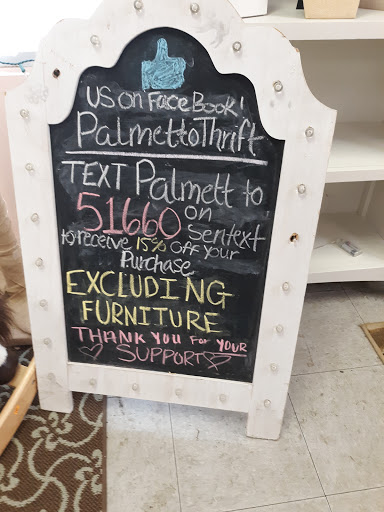 US on FaceBook!
PalmettoThrift
TEXT Palmett to
51660 on Sentext
to receive 15% off your
Purchase
EXCLUDING
FURNITURE
THANK YOU For YOUR
SUPPORT